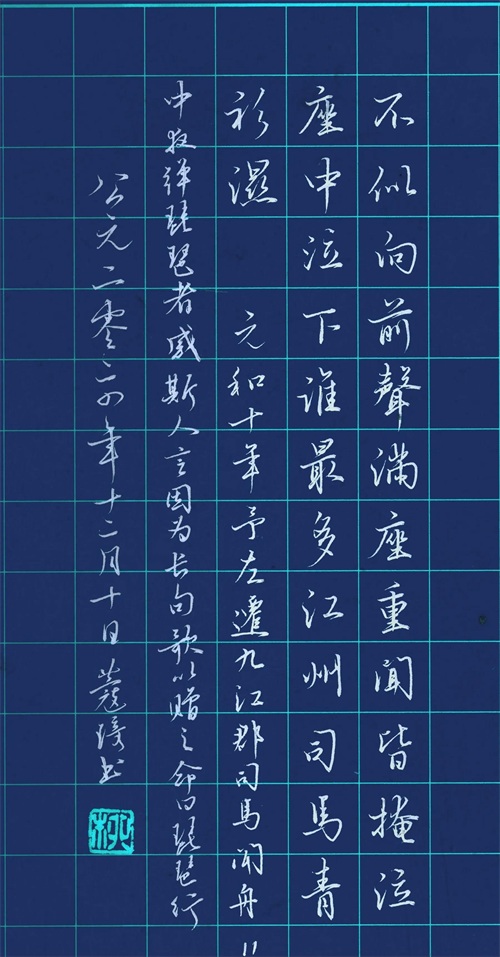 不似向前聲满座重闻皆掩泣
座中泣下谁最多江州司馬青
衫濕 元和十年予左遷九江郡司馬闻舟
中夜弹琵琶者感斯人言因为长句歌以赠之命曰琵琶行
公元二零々四年十二月十日 琦书
柳
11